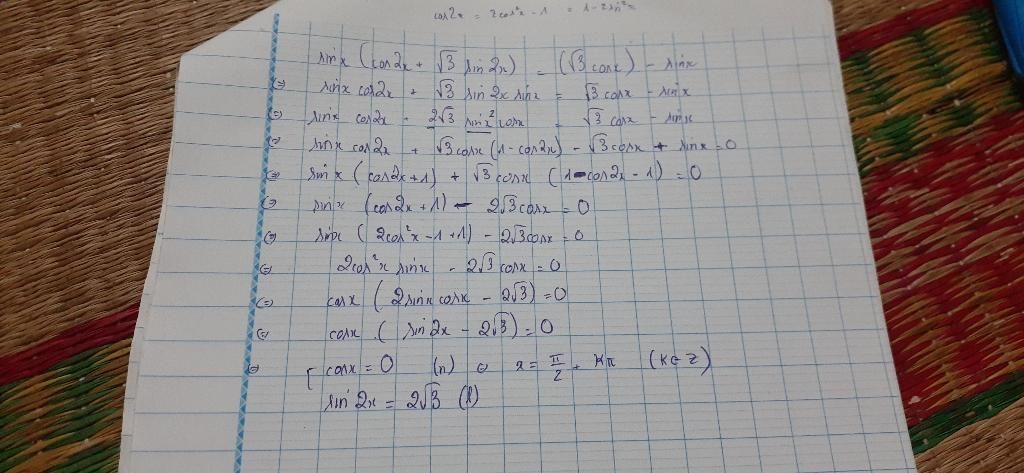 cos2x = 2cos²x - 1 = 1 - 2sin²x
sinx (cos2x + √3 sin2x) = (√3 cosx) - sinx
⇔ sinx cos2x + √3 sin2x sinx = √3 cosx - sinx
⇔ sinx cos2x + 2√3 sinx² cosx = √3 cosx - sinx
⇔ sinx cos2x + √3cosx (1-cos2x) - √3cosx + sinx = 0
⇔ sinx (cos2x+1) + √3 cosx (1-cos2x-1) = 0
⇔ sinx (cos2x+1) - 2√3cosx = 0
⇔ sinx (2cos²x-1+1) - 2√3cosx = 0
⇔ 2cos²x sinx - 2√3 cosx = 0
⇔ cosx (2sinx cosx - 2√3) = 0
⇔ cosx. (sin2x - 2√3) = 0
⇔ [ cosx = 0 (n) ⇔ x = π/2 + kπ (k∈Z)
sin2x = 2√3 (l)